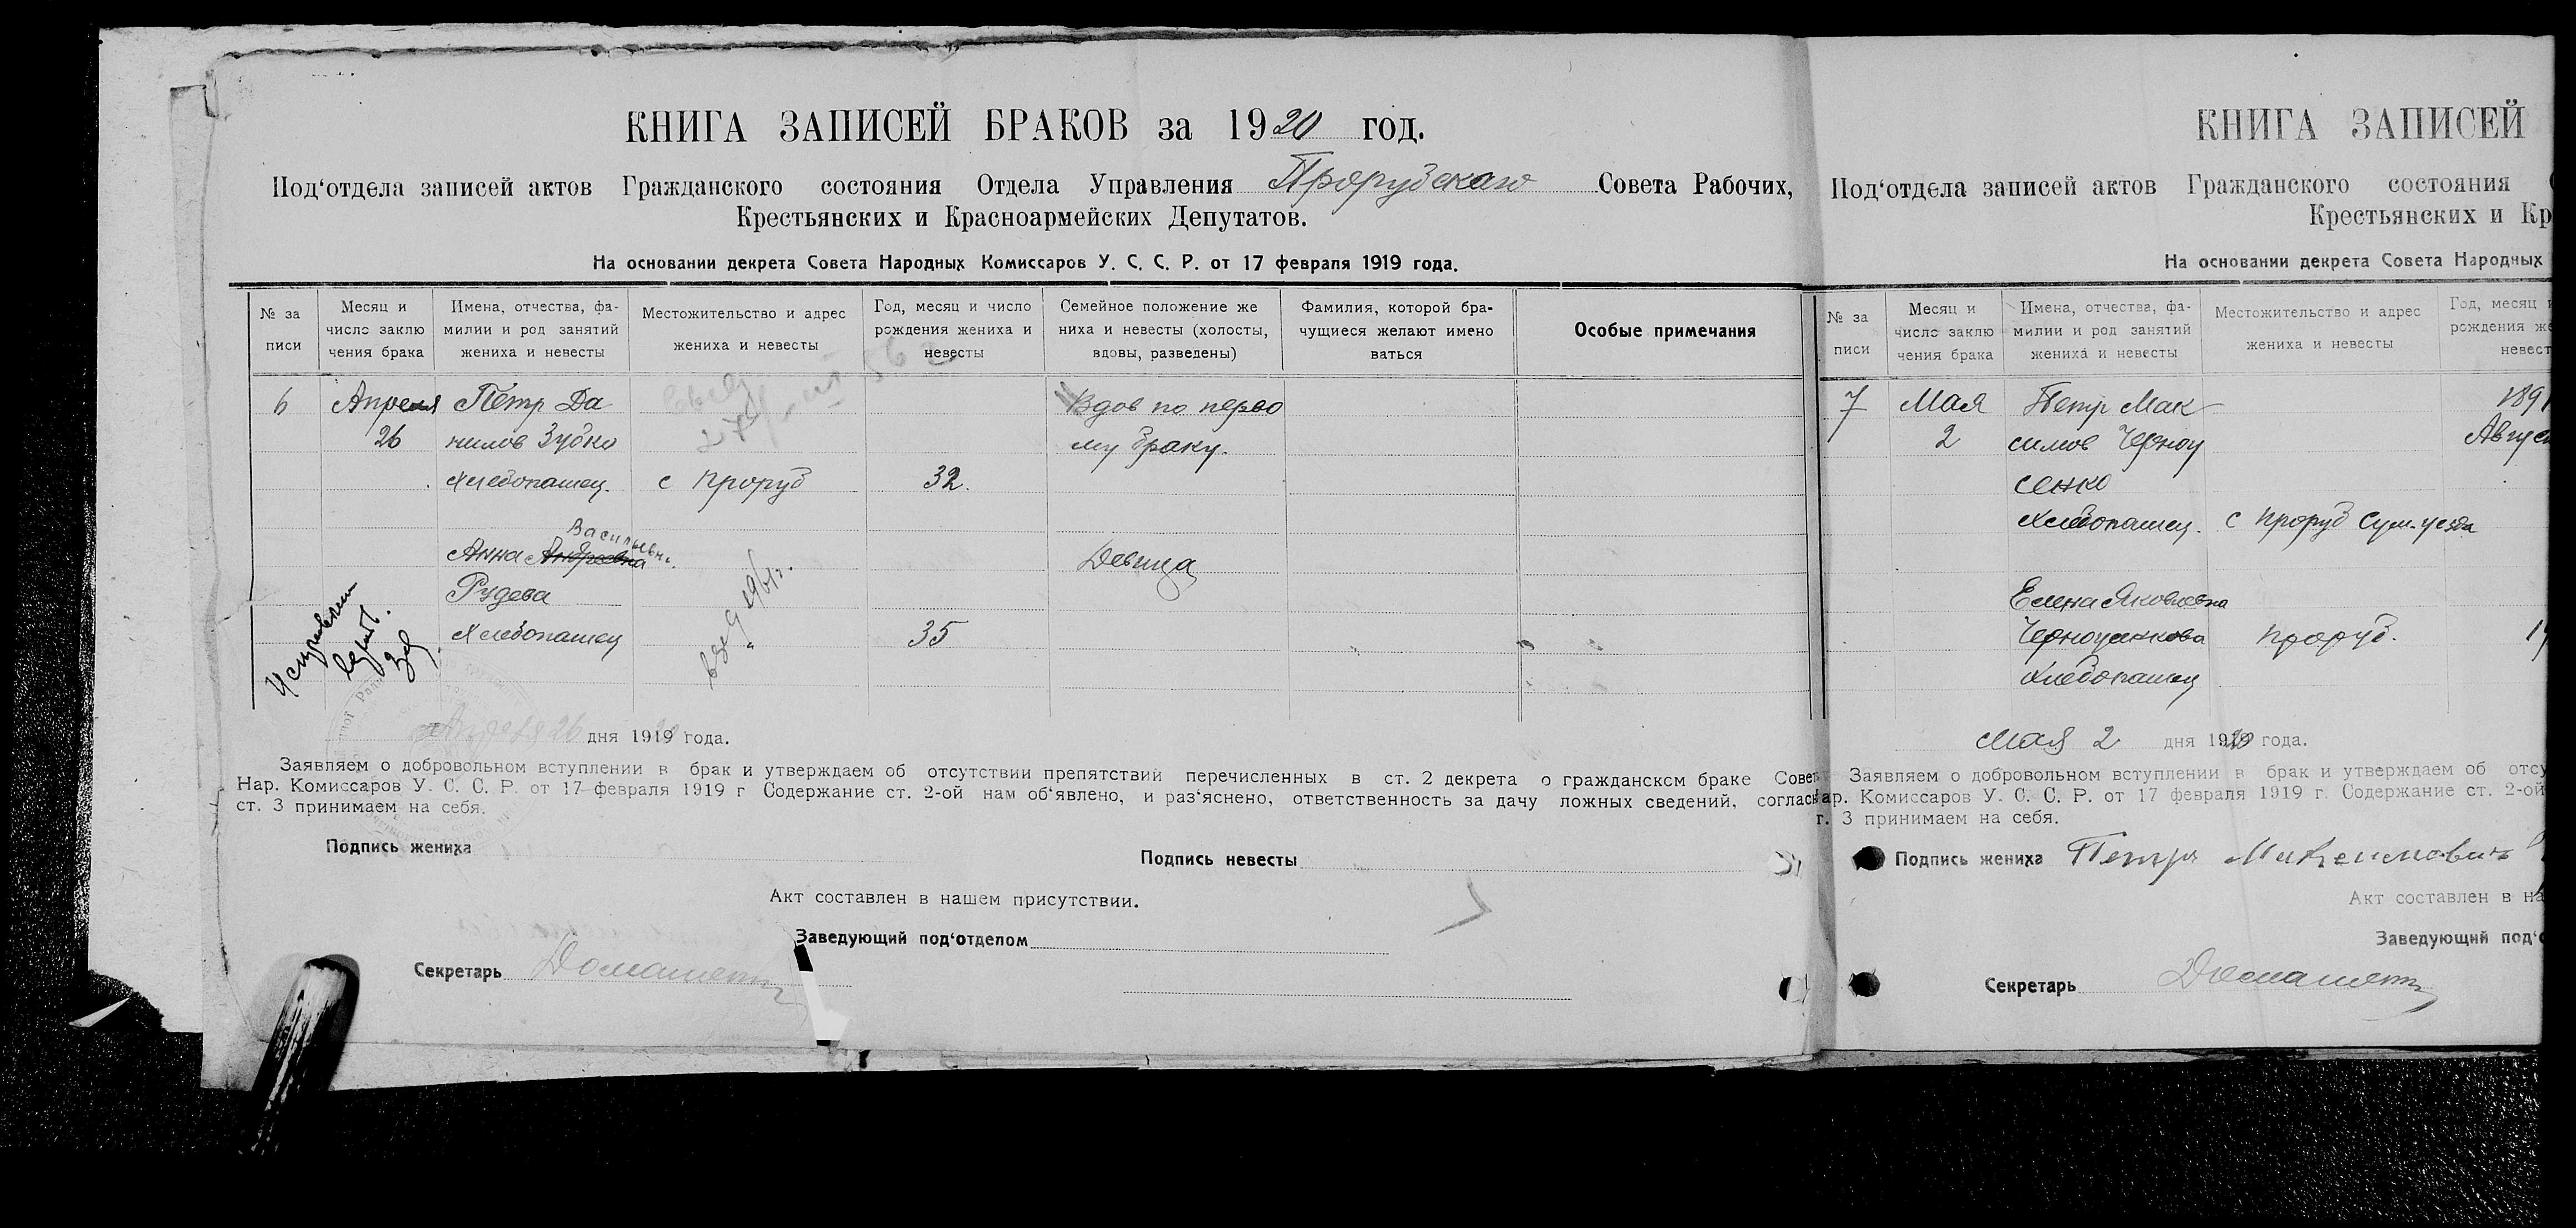 КНИГА ЗАПИСЕЙ БРАКОВ за 1920 год.
Под‘отдела записей актов Гражданского состояния Отдела Управления Прорубскаго Совета Рабочих,
Крестьянских и Красноармейских Депутатов.
На основании декрета Совета Народных Комиссаров У. С. С. Р. от 17 февраля 1919 года.
№ за
писи
Месяц и
число заклю
чения брака
Имена, отчества, фа-
милии и род занятий
жениха и невесты
Местожительство и адрес
жениха и невесты
Год, месяц и число
рождения жениха и
невесты
Семейное положение же
ниха и невесты (холосты,
вдовы, разведены)
Фамилия, которой бра-
чущиеся желают имено
ваться
Особые примечания
6
Апреля
26
Петр Да
нилов Зубко
хлебопашец.
с Проруб
32.
Вдов по перво
му браку.
Васильевна.
Анна Андреевна
Рудева
Хлебопашец
"
35
Девица
Исправленн
верить.
Зав.
Апреля 26 дня 1919 года.
Заявляем о добровольном вступлении в брак и утверждаем об отсутствии препятствий перечисленных в ст. 2 декрета о гражданском браке Совет
Нар. Комиссаров У. С. С. Р. от 17 февраля 1919 г Содержание ст. 2-ой нам об‘явлено, и раз‘яснено, ответственность за дачу ложных сведений, соглас
ст. 3 принимаем на себя.
Подпись жениха
Подпись невесты
Акт составлен в нашем присутствии.
Заведующий под‘отделом
Секретарь
КНИГА ЗАПИСЕЙ
Под‘отдела записей актов Гражданского состояния
Крестьянских и Кр
На основании декрета Совета Народных
№ за
писи
Месяц и
число заклю
чения брака
Имена, отчества, фа-
милии и род занятий
жениха и невесты
Местожительство и адрес
жениха и невесты
Год, месяц и
рождения же
невест
7
Мая
2
Петр Мак
симов Черноу
сенко
хлебопашец.
с Проруб Сум-уезда
189
Август
Елена Яковлевна
Черноусенкова
Хлебопашец
Проруб.
Мая 2 дня 1920 года.
Заявляем о добровольном вступлении в брак и утверждаем об отсу
ар. Комиссаров У. С. С. Р. от 17 февраля 1919 г. Содержание ст. 2-ой
т. 3 принимаем на себя.
Подпись жениха Петр Максимович
Акт составлен в на
Заведующий под‘о
Секретарь